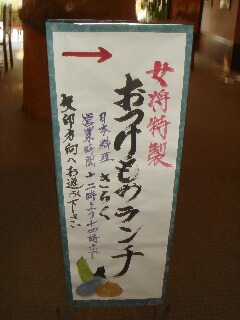 →
女将特製
おつけものランチ
日本料理 きらく
営業時間 十二時より十四時まで
矢印方向へお進み下さい